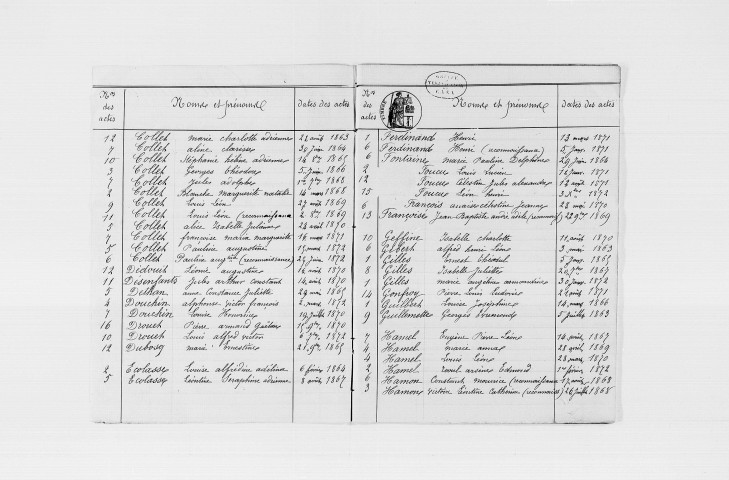 Nos des actes Noms et prénoms Dates des actes
12 Collet marie charlotte adrienne 22 août 1863
7 Collet aline clarisse 30 juin 1864
10 Collet Stéphanie hélène adrienne 14 8bre 1865
3 Collet Georges théodore 5 juin 1866
Collet jules adolphe 1er 7bre 1868
2 Collet Blanche marguerite natalie 14 mars 1868
9 Collet Louis Léon 27 août 1869
11 Collet Louis Léon (reconnaissance) 2 8bre 1869
5 Collet alice Isabelle Julienne 24 août 1870
7 Collet françoise maria marguerite 16 mars 1871
5 Collet Pauline augustine 15 mars 1872
6 Collet Pauline augtine (reconnaissance) 24 juin 1872
12 Dedouit Léonie augustine 16 août 1870
11 Desenfants Jules arthur constant 14 août 1870
5 Dethan anne Constance Juliette 29 mai 1865
4 Douchin alphonse victor francois 2 mars 1872
7 Douchin Louise Honorine 19 juillet 1870
16 Drouet Pierre armand Gaëtan 15 9bre 1870
10 Drouet Louis alfred victor 6 7bre 1872
12 Dubosq marie ernestine 26 9bre 1865
2 Ecolasse Louise alfredine adélina 6 février 1864
5 Ecolasse Léontine Seraphine adrienne 8 août 1867
Nos des actes Noms et prénoms Dates des actes
1 Ferdinand Henri 13 mars 1871
6 Ferdinand Henri (reconnaissance) 5 juin 1871
6 Fontaine marie Pauline Delphine 29 juin 1866
2 Foucu Louis Lucien 1871
12 Foucu Célestin Jules alexandre 12 août 1871
15 Foucu Léon henri 3 Xbre 1872
6 François anaïse célestine Jeanne 28 mai 1870
13 Françoise Jean Baptiste andré 22 9bre 1869
10 Geffine Isabelle charlotte 11 août 1870
6 Gibbert alfred henri Léon 3 mai 1863
1 Gilles Ernest théophile 5 1865
8 Gilles Isabelle Juliette 20 7bre 1867
1 Gilles marie angelina 30 1872
14 Gonfroy Pierre Louis Ludovic 22 août 1871
1 Guilbert Louise Joséphine 14 mars 1866
9 Guillemette Georges 5 juillet 1863
7 Hamel Eugène Pierre Léon 14 août 1867
4 Hamel marie anna 28 avril 1869
4 Hamel Louis Léon 28 mars 1870
2 Hamel raoul arsène Edmond 1er février 1872
6 Hamon Constant maurice (reconnaissance) 17 août 1868
3 Hamon victoire Léontine Catherine (reconnaissance) 26 juillet 1868